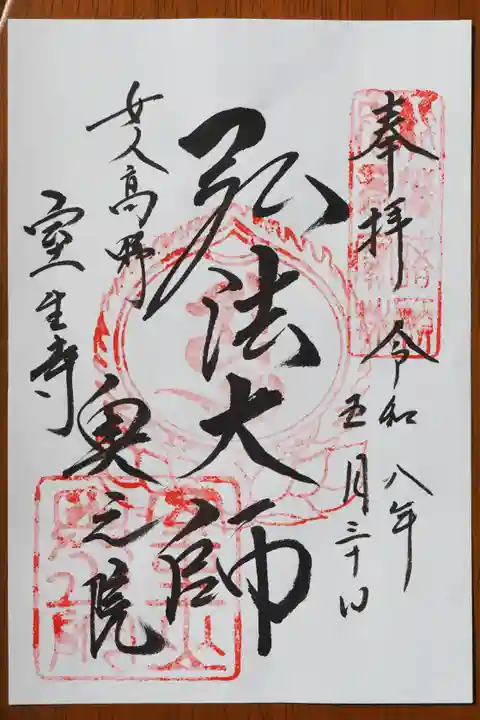 奉拝
令和八年
五月三十日
弘法大師
女人高野
室生寺
奥之院